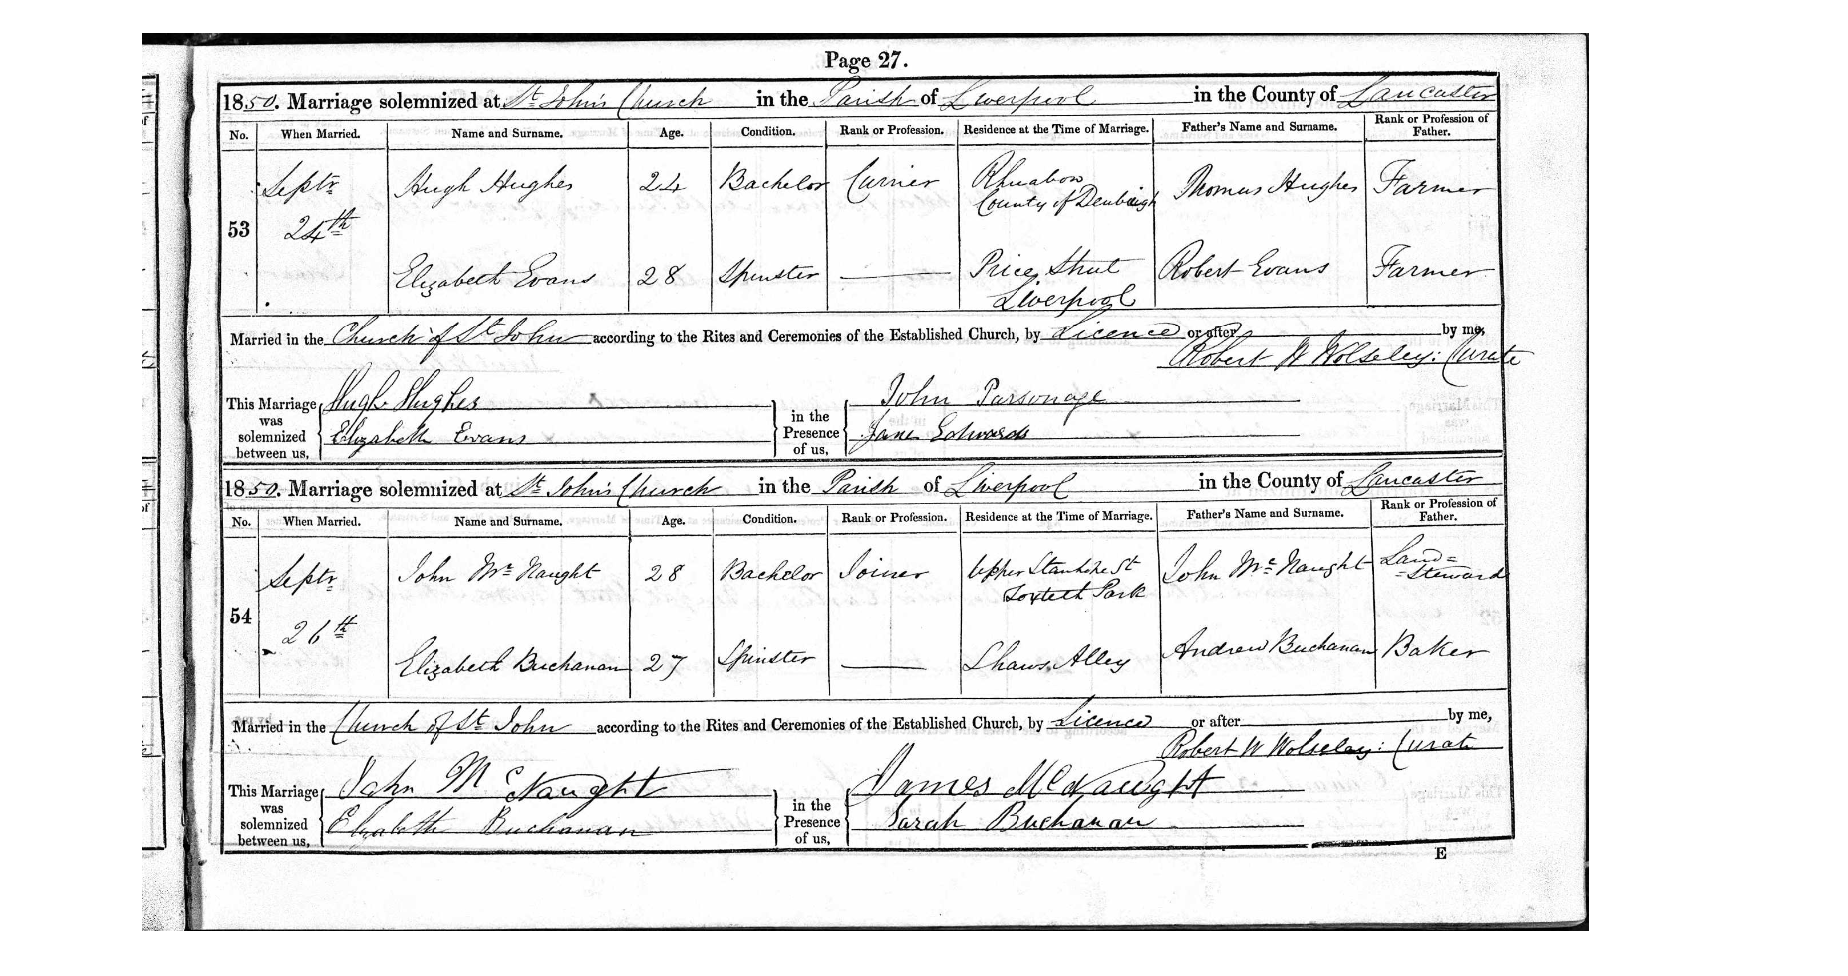 Page 27.
1850. Marriage solemnized at St. John's Church in the Parish of Liverpool in the County of Lancaster
No. When Married. Name and Surname. Age. Condition. Rank or Profession. Residence at the Time of Marriage. Father's Name and Surname. Rank or Profession of Father.
53 Septr 24th Hugh Hughes 24 Bachelor Currier Rhuabon County of Denbeigh Thomas Hughes Farmer
Elizabeth Evans 28 Spinster — Price Street Liverpool Robert Evans Farmer
Married in the Church of St. John according to the Rites and Ceremonies of the Established Church, by Licence or after by me,
Robert W Wolseley: Curate
This Marriage was solemnized between us, Hugh Hughes in the Presence of us, John Parsonage
Elizabeth Evans Jane Edwards
1850. Marriage solemnized at St. John's Church in the Parish of Liverpool in the County of Lancaster
No. When Married. Name and Surname. Age. Condition. Rank or Profession. Residence at the Time of Marriage. Father's Name and Surname. Rank or Profession of Father.
54 Septr 26th John Mc Naught 28 Bachelor Joiner Upper Stanhope St Toxteth Park John Mc Naught Land= =Steward
Elizabeth Buchanan 27 Spinster — Shaws Alley Andrew Buchanan Baker
Married in the Church of St. John according to the Rites and Ceremonies of the Established Church, by Licence or after by me,
Robert W Wolseley: Curate
This Marriage was solemnized between us, John Mc Naught in the Presence of us, James McNaught
Elizabeth Buchanan Sarah Buchanan
E